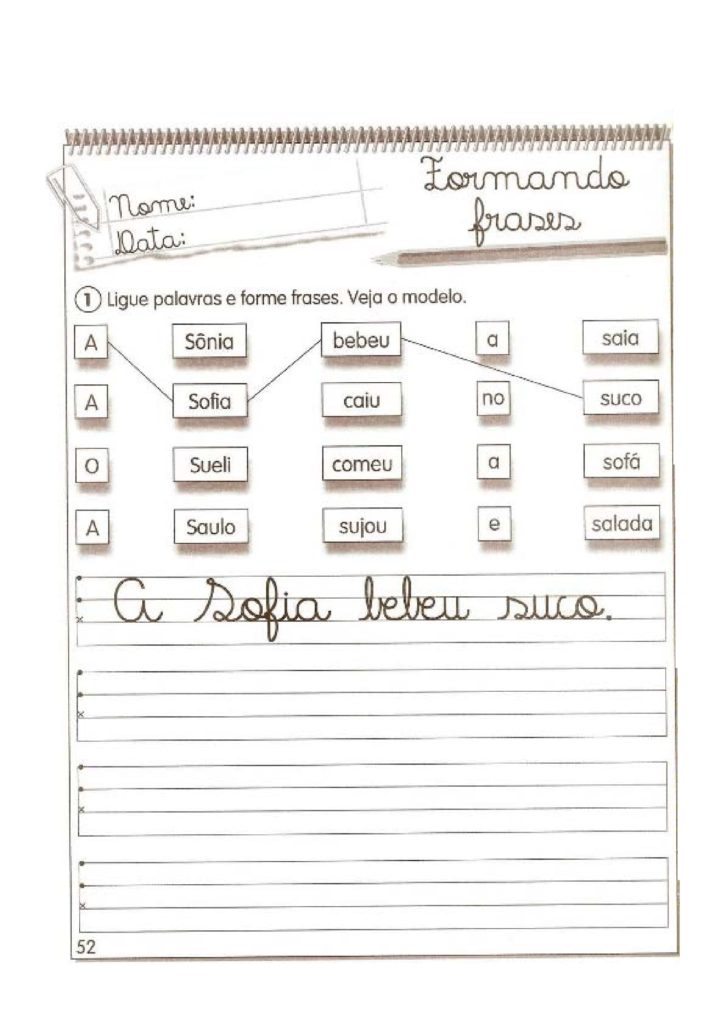 Formando
frases
Nome:
Data:
1 Ligue palavras e forme frases. Veja o modelo.
A Sônia bebeu a saia
A Sofia caiu no suco
O Sueli comeu a sofá
A Saulo sujou e salada
A Sofia bebeu suco.
52